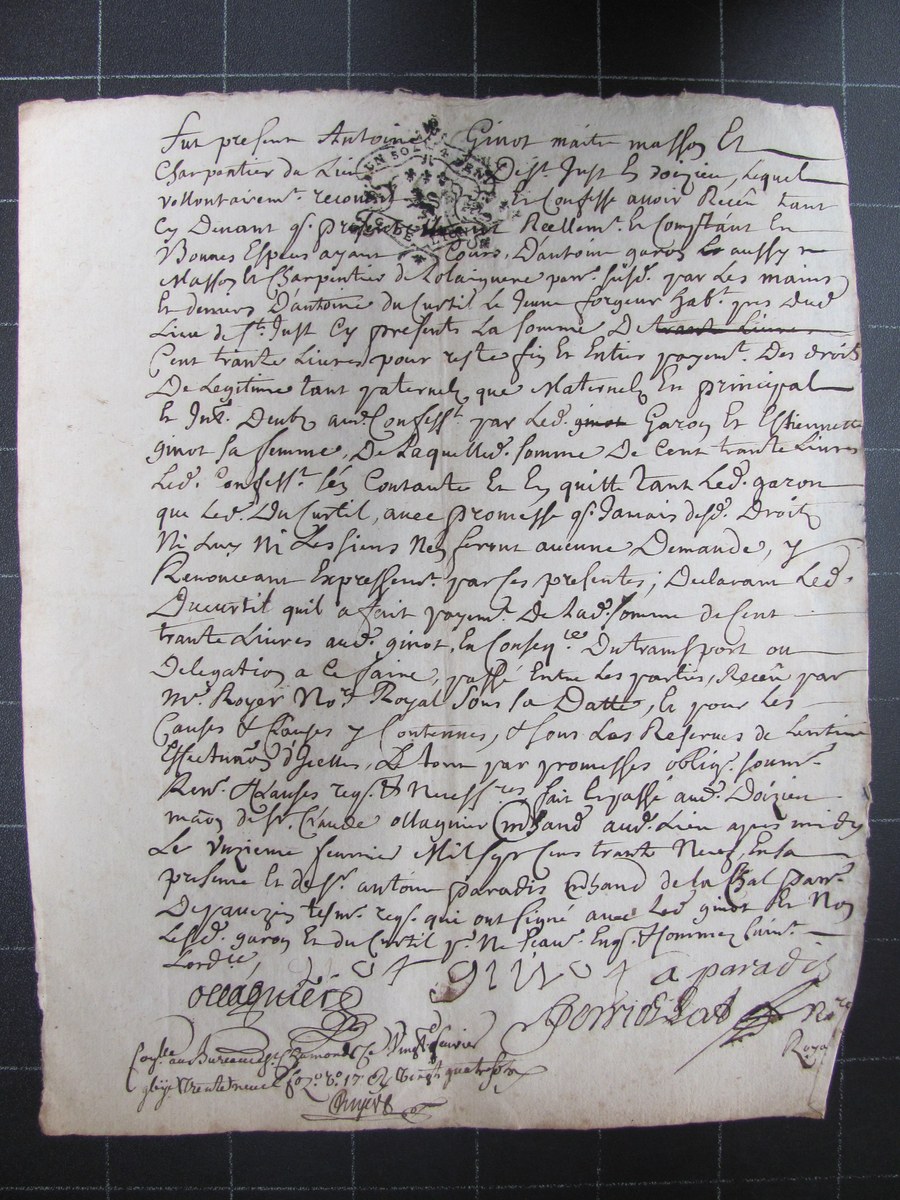 Fut present Antoine Ginot maitre masson Et
Charpentier du Lieu de St. Just En doizieu, Lequel
vollontairemt. reconoit Et Confesse avoir Receu tant
Cy Devant qe. presentement Reellemt. Et Comptant En
Bonnes Especes ayant Cours, D'antoine garon aussy
Masson Et Charpentier de parr. susd. par Les mains
Et deniers D'antoine du Curtil Le Jeune forgeur habt. dud.
Lieu de St. Just Cy presents La somme De trante Livres
Cent trante Livres pour reste fin Et Entier payemt. Des droits
De Legitime tant paternels que Maternels En principal
Et Int. Deubs aud. Confesst. par Led. ginot Garon Et Estiennette
ginot sa femme, De Laquelled. somme De Cent trante Livres
Led. Confesst. s'en Contante Et En quitte tant Led. garon
que Led. Du Curtil, avec promesse qe. Jamais desd. Droits
Ni Luy Ni Les siens N'en feront aucune Demande, y
Renonceant Expressemt. par ces presentes; Declarant Led.
Ducurtil quil a fait payemt. De Lad. somme de Cent
trante Livres aud. ginot, En Conseqce. Du transport ou
Delegation a Ce faire, passé Entre Les parties, Receu par
Me. Royer Nore. Royal sous sa Datte, Et pour Les
Causes & Clauses y Contenues, & sous Les Reserves de
d'Icelles, Le tout par promesses obligs. soumns.
Renns. & Clauses reqs. & Necessres. fait Et passé aud. Doizieu
maon de sr. Claude ollagnier mchand aud. Lieu apres midy
Le Vnzieme feuvrier Mil Sept Cens trante Neuf, En sa
presence Et de sr. antoine paradis mchand de la Chal parr.
De pavezin tesms. reqs. qui ont signé avec Led. ginot Et Non
Lesd. garon Et du Curtil pr. Ne sçavr. Enqs. & sommez suivt.
Lordce.
ollagniere ginot a paradis
Nore.
Royal
Conlle. au Bureau de St. Chamond Ce Vingt fevrier
trente neuf fo. 20 vo. 17 Rx Vingt quatre sols